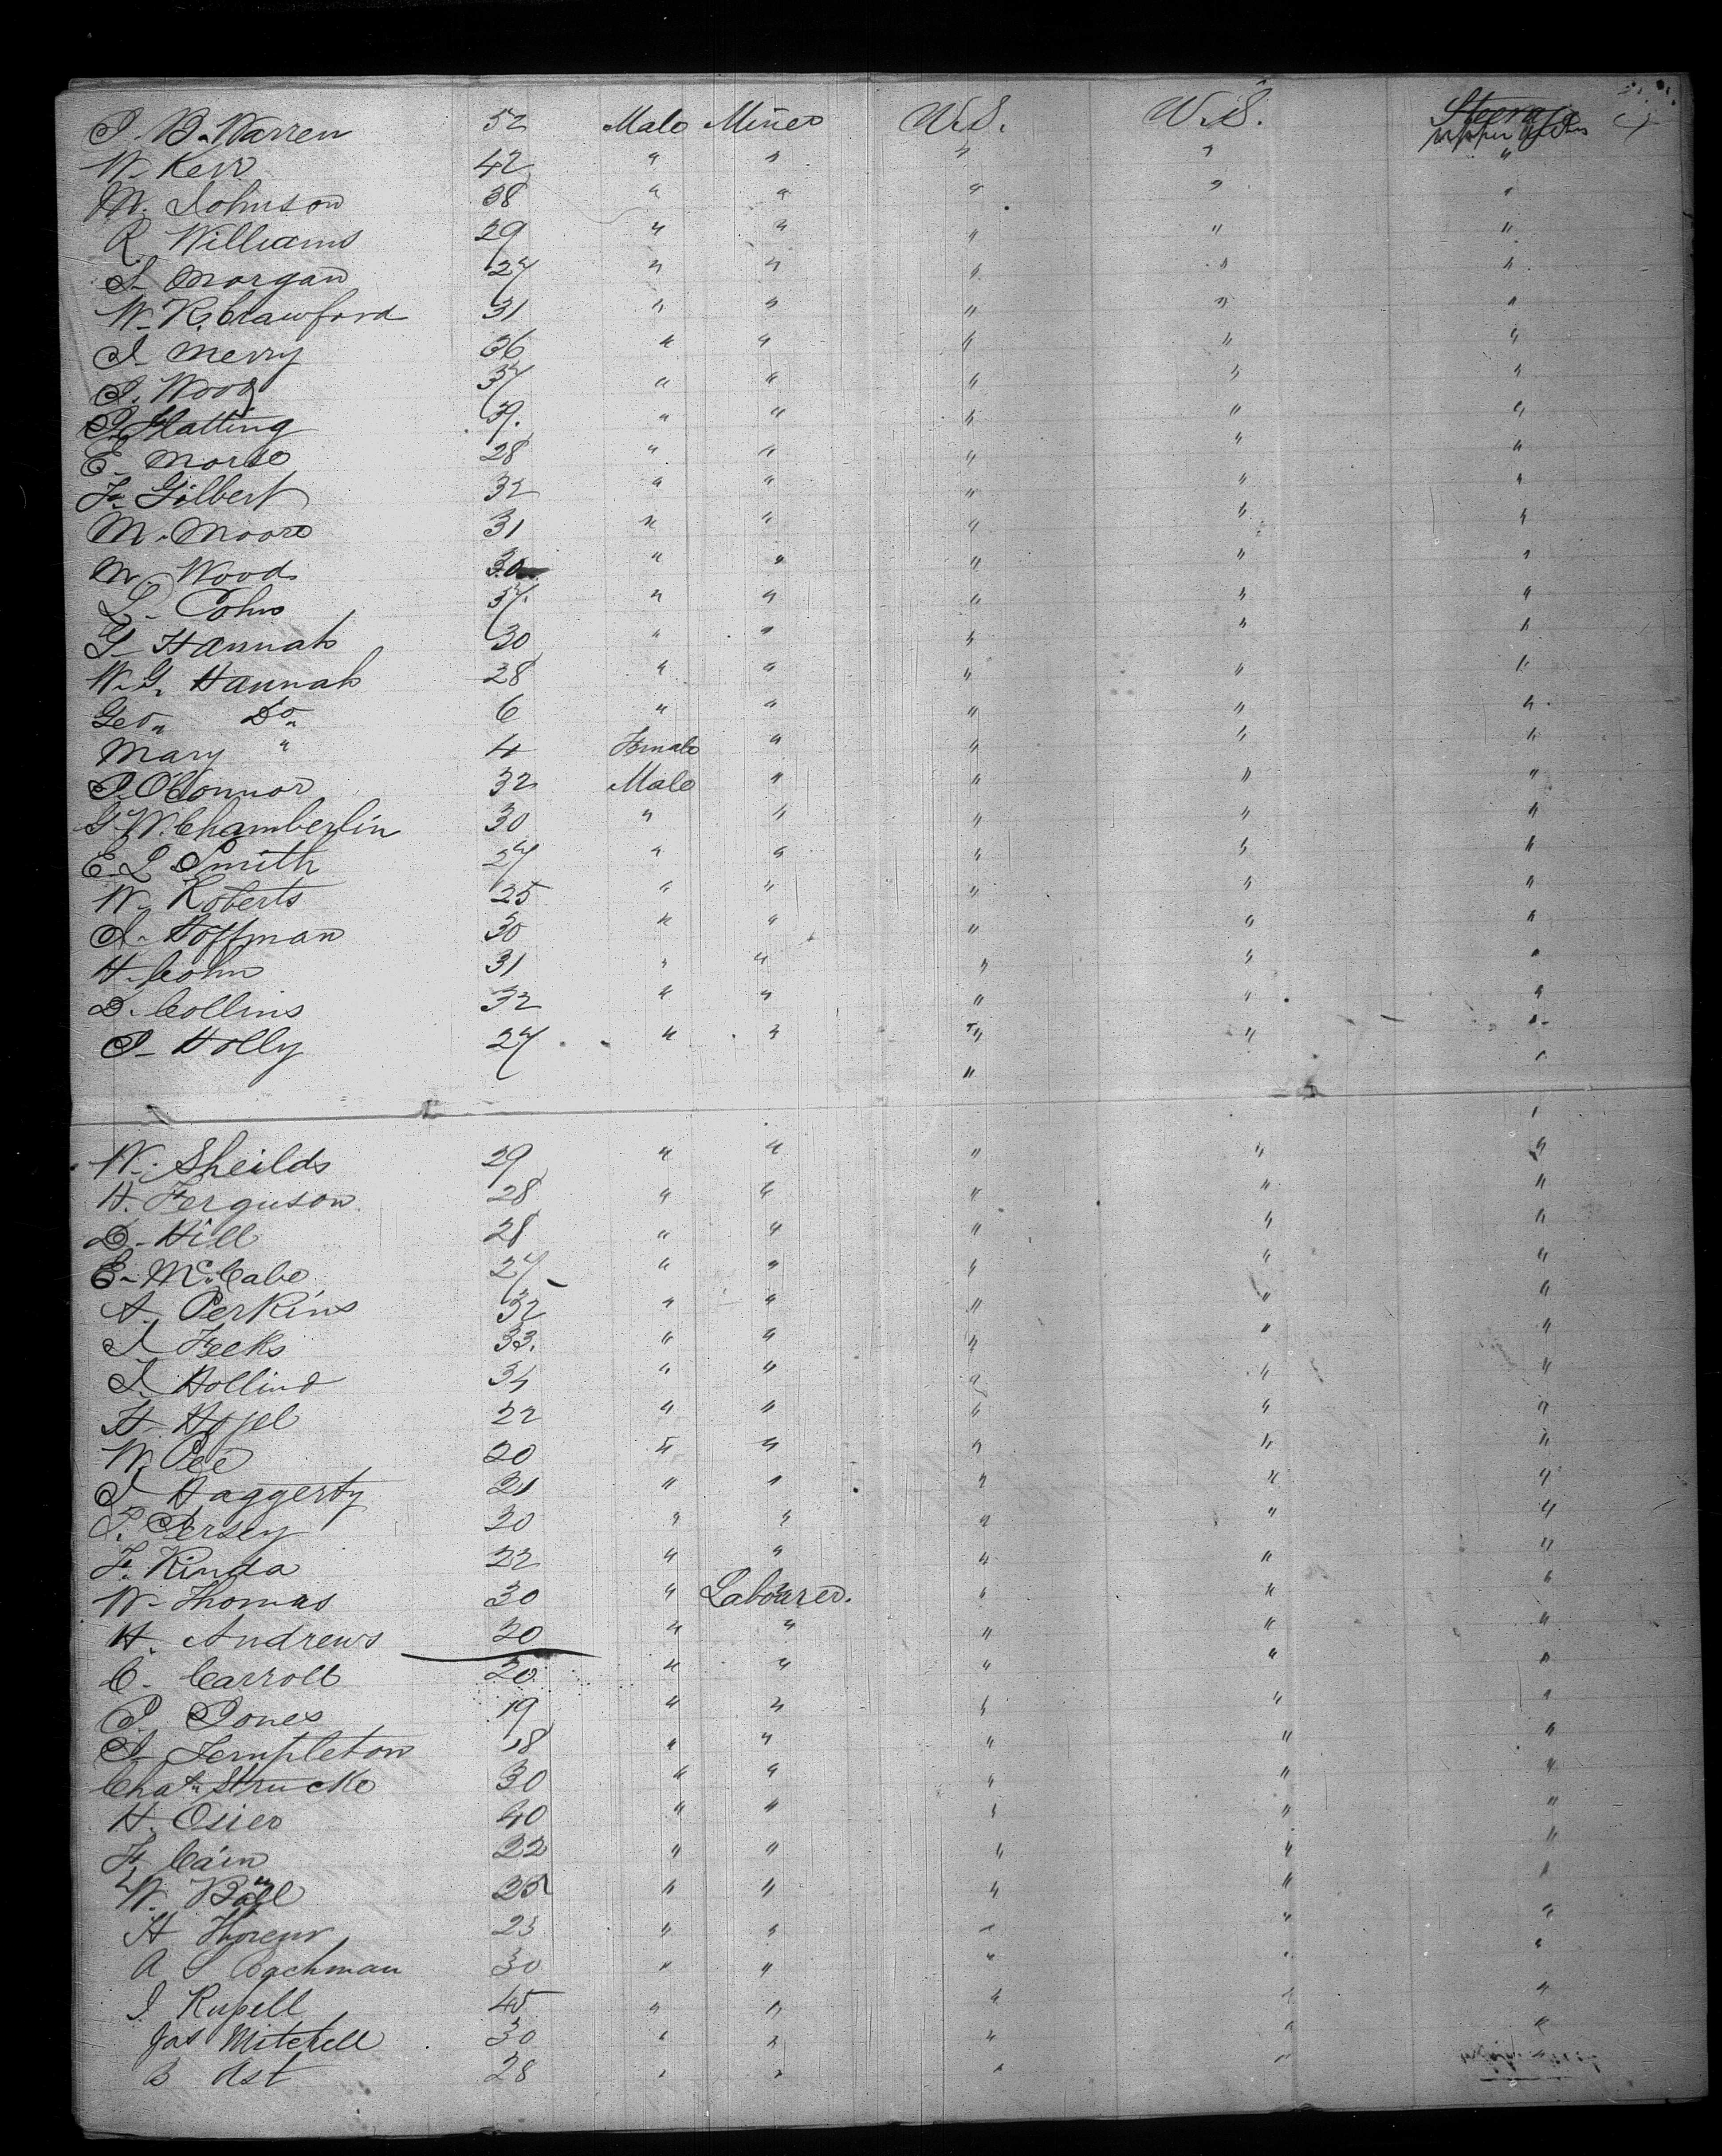 J. B. Warren 52 Male Miner U.S. U.S. Steerage
W. Kerr 42 " " " " upper "
M. Johnson 38 " " " " "
R. Williams 29 " " " " "
S. Morgan 27 " " " " "
W. R. Crawford 31 " " " " "
J. Merry 36 " " " " "
J. Wood 37 " " " " "
39. " " " " "
E. Morse 28 " " " " "
F. Gilbert 32 " " " " "
M. Moore 31 " " " " "
M. Wood 30 " " " " "
L. Cohn 37. " " " " "
G. Hannah 30 " " " " "
W. G. Hannah 28 " " " " "
Geo. Do. 6 " " " " "
Mary " 4 Female " " " "
P. O'Connor 32 Male " " " "
G. W. Chamberlin 30 " " " " "
E. L Smith 27 " " " " "
W. Roberts 25 " " " " "
J. Hoffman 30 " " " " "
H. Cohn 31 " " " " "
D. Collins 32 " " " " "
P. Holly 27 " " " " "
" "
W. Sheilds 29 " " " " "
H. Ferguson. 28 " " " " "
D. Hill 28 " " " " "
E. McCabe 27 " " " " "
A. Perkins 32 " " " " "
J Feeks 33. " " " " "
J. Hollind 34 " " " " "
H. 22 " " " " "
W. Pee 20 " " " " "
J Haggerty 21 " " " " "
P. Persey 20 " " " " "
F. Kinda 22 " " " " "
W. Thomas 30 " Labourer. " " "
H. Andrews 20 " " " " "
C. Carroll 20 " " " " "
P. Jones 19 " " " " "
J. Templeton 18 " " " " "
Chas. Strucke 30 " " " " "
H. Osier 40 " " " " "
F. Cain 22 " " " " "
W. Ball 25 " " " " "
H 23 " " " " "
A S Bachman 30 " " " " "
J Russell 45 " " " " "
Jas Mitchell 30 " " " " "
B Ast 28 " " " "